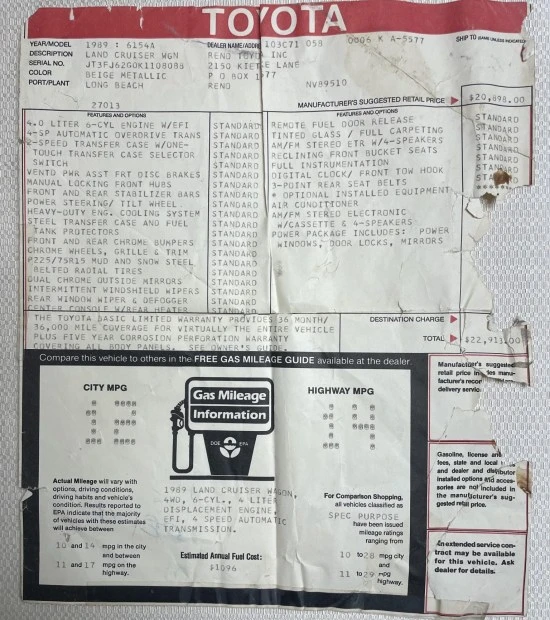 TOYOTA
YEAR/MODEL 1989 : 6154A DEALER NAME/ADDR 103C71 058 0006 K A-5577 SHIP TO
DESCRIPTION LAND CRUISER WGN RENO TOYOTA INC
SERIAL NO. JT3FJ62G0K1108088 2150 KIETZKE LANE
COLOR BEIGE METALLIC P O BOX
PORT/PLANT LONG BEACH RENO NV89510
27013
MANUFACTURER'S SUGGESTED RETAIL PRICE $20,898.00
FEATURES AND OPTIONS
4.0 LITER 6-CYL ENGINE W/EFI STANDARD
4-SP AUTOMATIC OVERDRIVE TRANS STANDARD
2-SPEED TRANSFER CASE W/ONE- STANDARD
TOUCH TRANSFER CASE SELECTOR
SWITCH
VENTD PWR ASST FRT DISC BRAKES STANDARD
MANUAL LOCKING FRONT HUBS STANDARD
FRONT AND REAR STABILIZER BARS STANDARD
POWER STEERING/ TILT WHEEL STANDARD
HEAVY-DUTY ENG. COOLING SYSTEM STANDARD
STEEL TRANSFER CASE AND FUEL STANDARD
TANK PROTECTORS
FRONT AND REAR CHROME BUMPERS STANDARD
CHROME WHEELS, GRILLE & TRIM STANDARD
P225/75R15 MUD AND SNOW STEEL STANDARD
BELTED RADIAL TIRES
DUAL CHROME OUTSIDE MIRRORS STANDARD
INTERMITTENT WINDSHIELD WIPERS STANDARD
REAR WINDOW WIPER & DEFOGGER STANDARD
CENTER CONSOLE W/REAR HEATER STANDARD
FEATURES AND OPTIONS
REMOTE FUEL DOOR RELEASE STANDARD
TINTED GLASS / FULL CARPETING STANDARD
AM/FM STEREO ETR W/4-SPEAKERS STANDARD
RECLINING FRONT BUCKET SEATS STANDARD
FULL INSTRUMENTATION STANDARD
DIGITAL CLOCK/ FRONT TOW HOOK STANDARD
3-POINT REAR SEAT BELTS
* OPTIONAL INSTALLED EQUIPMENT
AIR CONDITIONER
AM/FM STEREO ELECTRONIC
W/CASSETTE & 4-SPEAKERS
POWER PACKAGE INCLUDES: POWER
WINDOWS, DOOR LOCKS, MIRRORS
THE TOYOTA BASIC LIMITED WARRANTY PROVIDES 36 MONTH/
36,000 MILE COVERAGE FOR VIRTUALLY THE ENTIRE VEHICLE
PLUS FIVE YEAR CORROSION PERFORATION WARRANTY
COVERING ALL BODY PANELS. SEE OWNER'S GUIDE.
DESTINATION CHARGE
TOTAL $22,913.00
Compare this vehicle to others in the FREE GAS MILEAGE GUIDE available at the dealer.
CITY MPG
10
Gas Mileage
Information
DOE EPA
HIGHWAY MPG
Actual Mileage will vary with
options, driving conditions,
driving habits and vehicle's
condition. Results reported to
EPA indicate that the majority
of vehicles with these estimates
will achieve between
10 and 14 mpg in the city
and between
11 and 17 mpg on the
highway.
1989 LAND CRUISER WAGON,
4WD, 6-CYL., 4 LITER
DISPLACEMENT ENGINE,
EFI, 4 SPEED AUTOMATIC
TRANSMISSION.
Estimated Annual Fuel Cost:
$1096
For Comparison Shopping,
all vehicles classified as
SPEC PURPOSE
have been issued
mileage ratings
ranging from
10 to 28 mpg city
and
11 to 29 mpg
highway.
Manufacturer's suggested
retail price
delivery service
Gasoline, license and
fees, state and local
and dealer and distributor
installed options and acces-
sories are not included in
the manufacturer's sug-
gested retail price.
An extended service con-
tract may be available
for this vehicle. Ask
dealer for details.